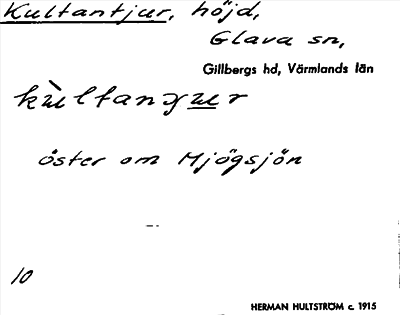 Kultantjur, höjd,
Glava sn,
Gillbergs hd, Värmlands län
kùltanɣur
öster om Mjögsjön
10
HERMAN HULTSTRÖM c. 1915